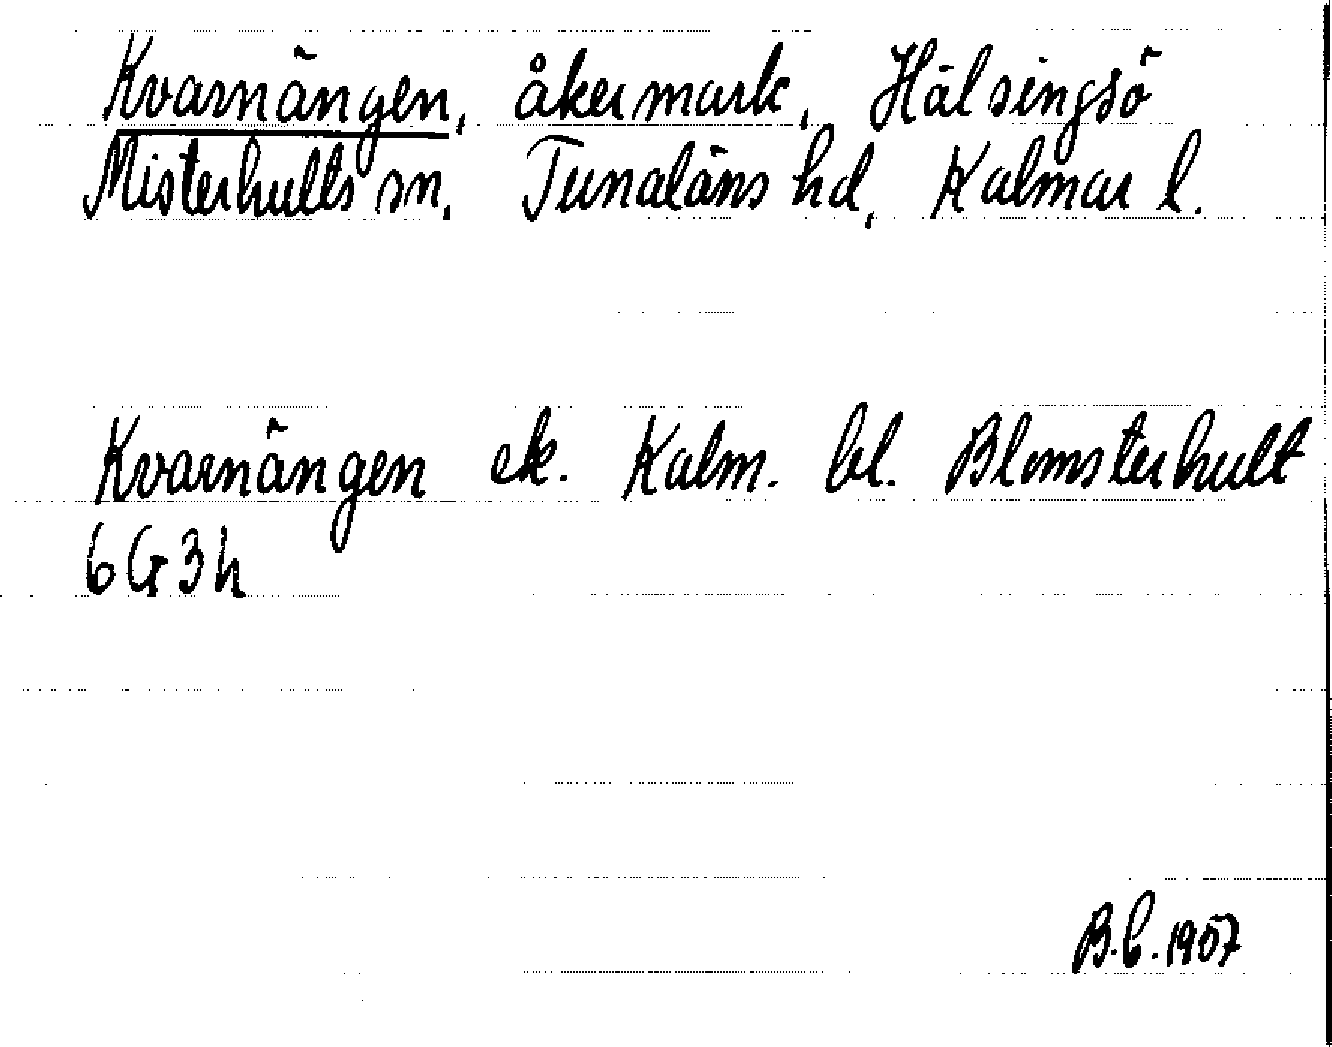 Kvarnängen, åkermark, Hälsingsö
Misterhults sn, Tunaläns hd, Kalmar l.
Kvarnängen ek. Kalm. bl. Blomsterhult
6G3h
B.b.1957